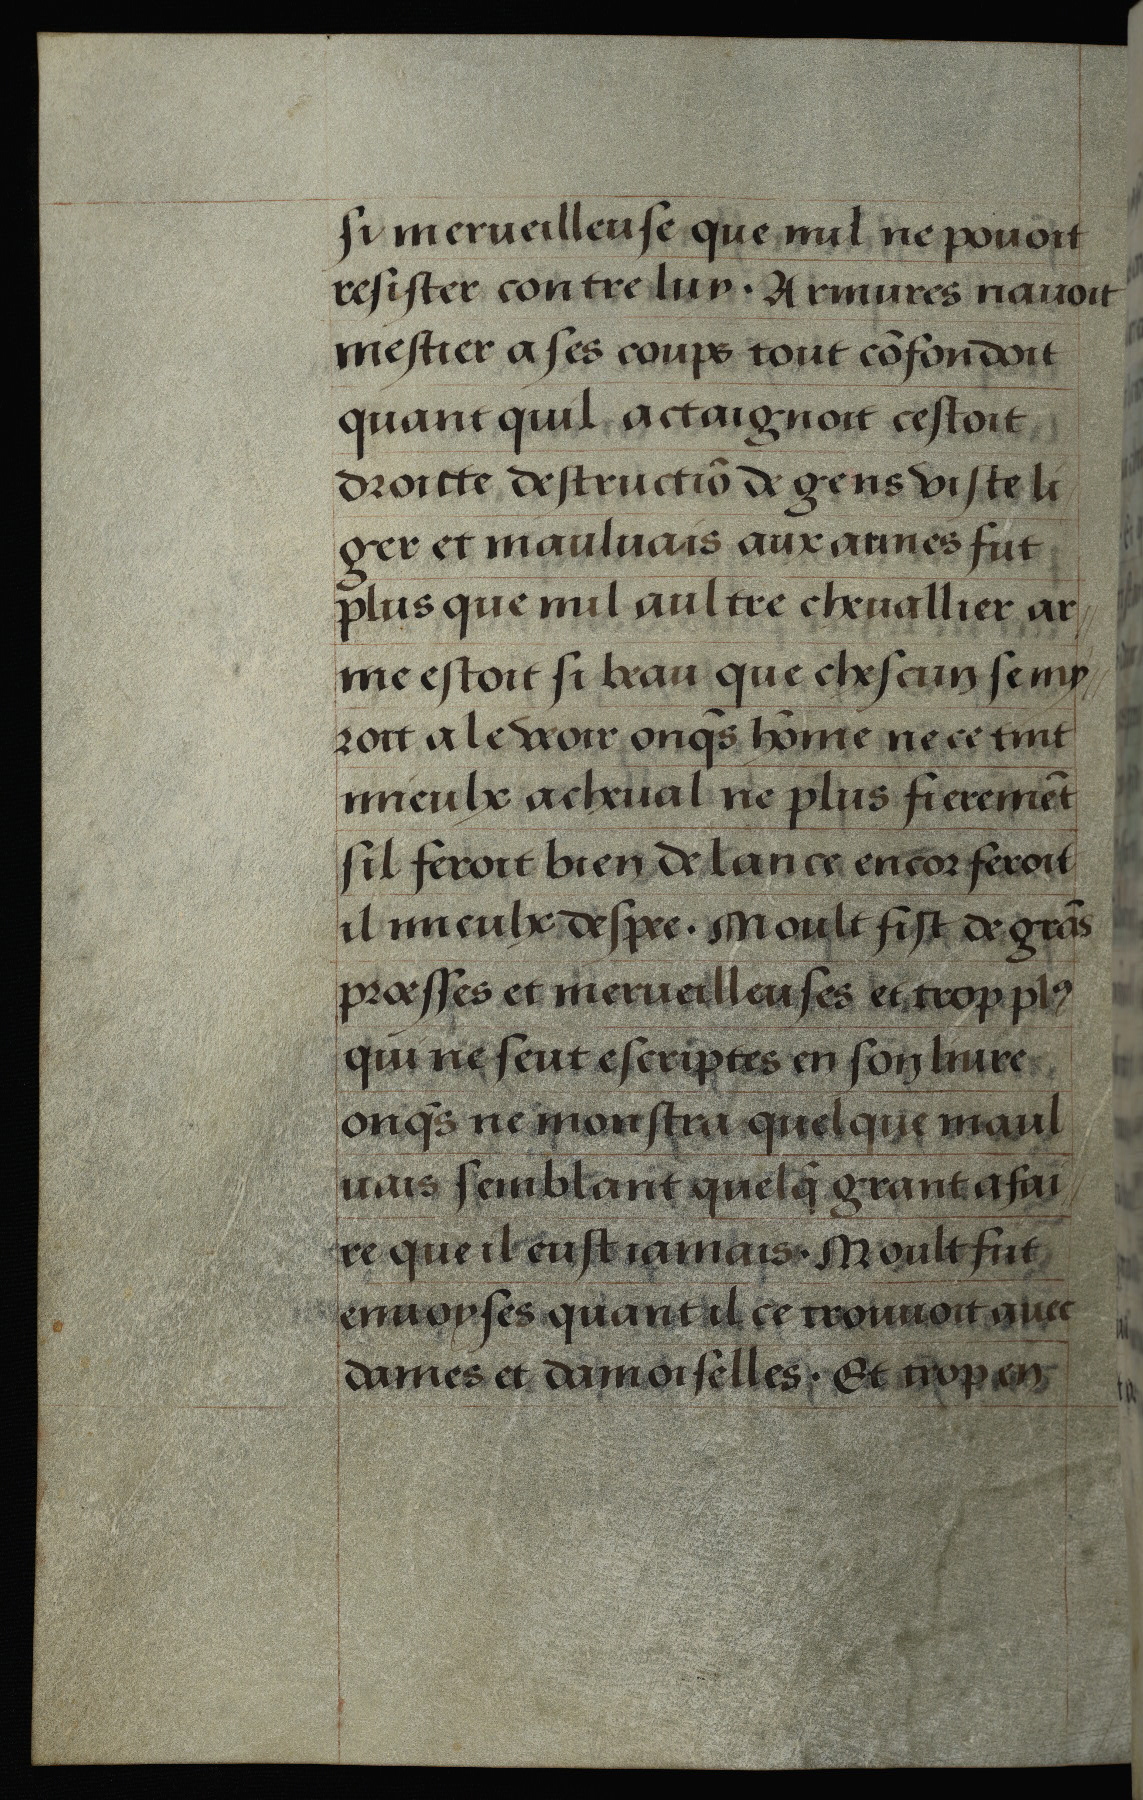 si merueilleuse que nul ne pouoit
resister contre luy. Armures nauoit
mestier a ses coups tout cõfondoit
quant quil actaignoit cestoit
droicte destructiõ de gens viste li
ger et mauluais aux armes fut
plus que nul aultre cheuallier ar//
me estoit si beau que chescun se my//
roit a le veoir onq̃s hõme ne ce tint
mieulx a cheual ne plus fieremẽt
sil feroit bien de lance encor feroit
il mieulx despee. Moult fist de grãs
proesses et merueilleuses et trop plꝰ
qui ne seut escriptes en son liure
onq̃s ne monstra quelque maul
uais semblant quelq̃ grant afai//
re que il eust iamais. Moult fut
enuoyses quant il ce trouuoit auec
dames et damoiselles. Et trop en